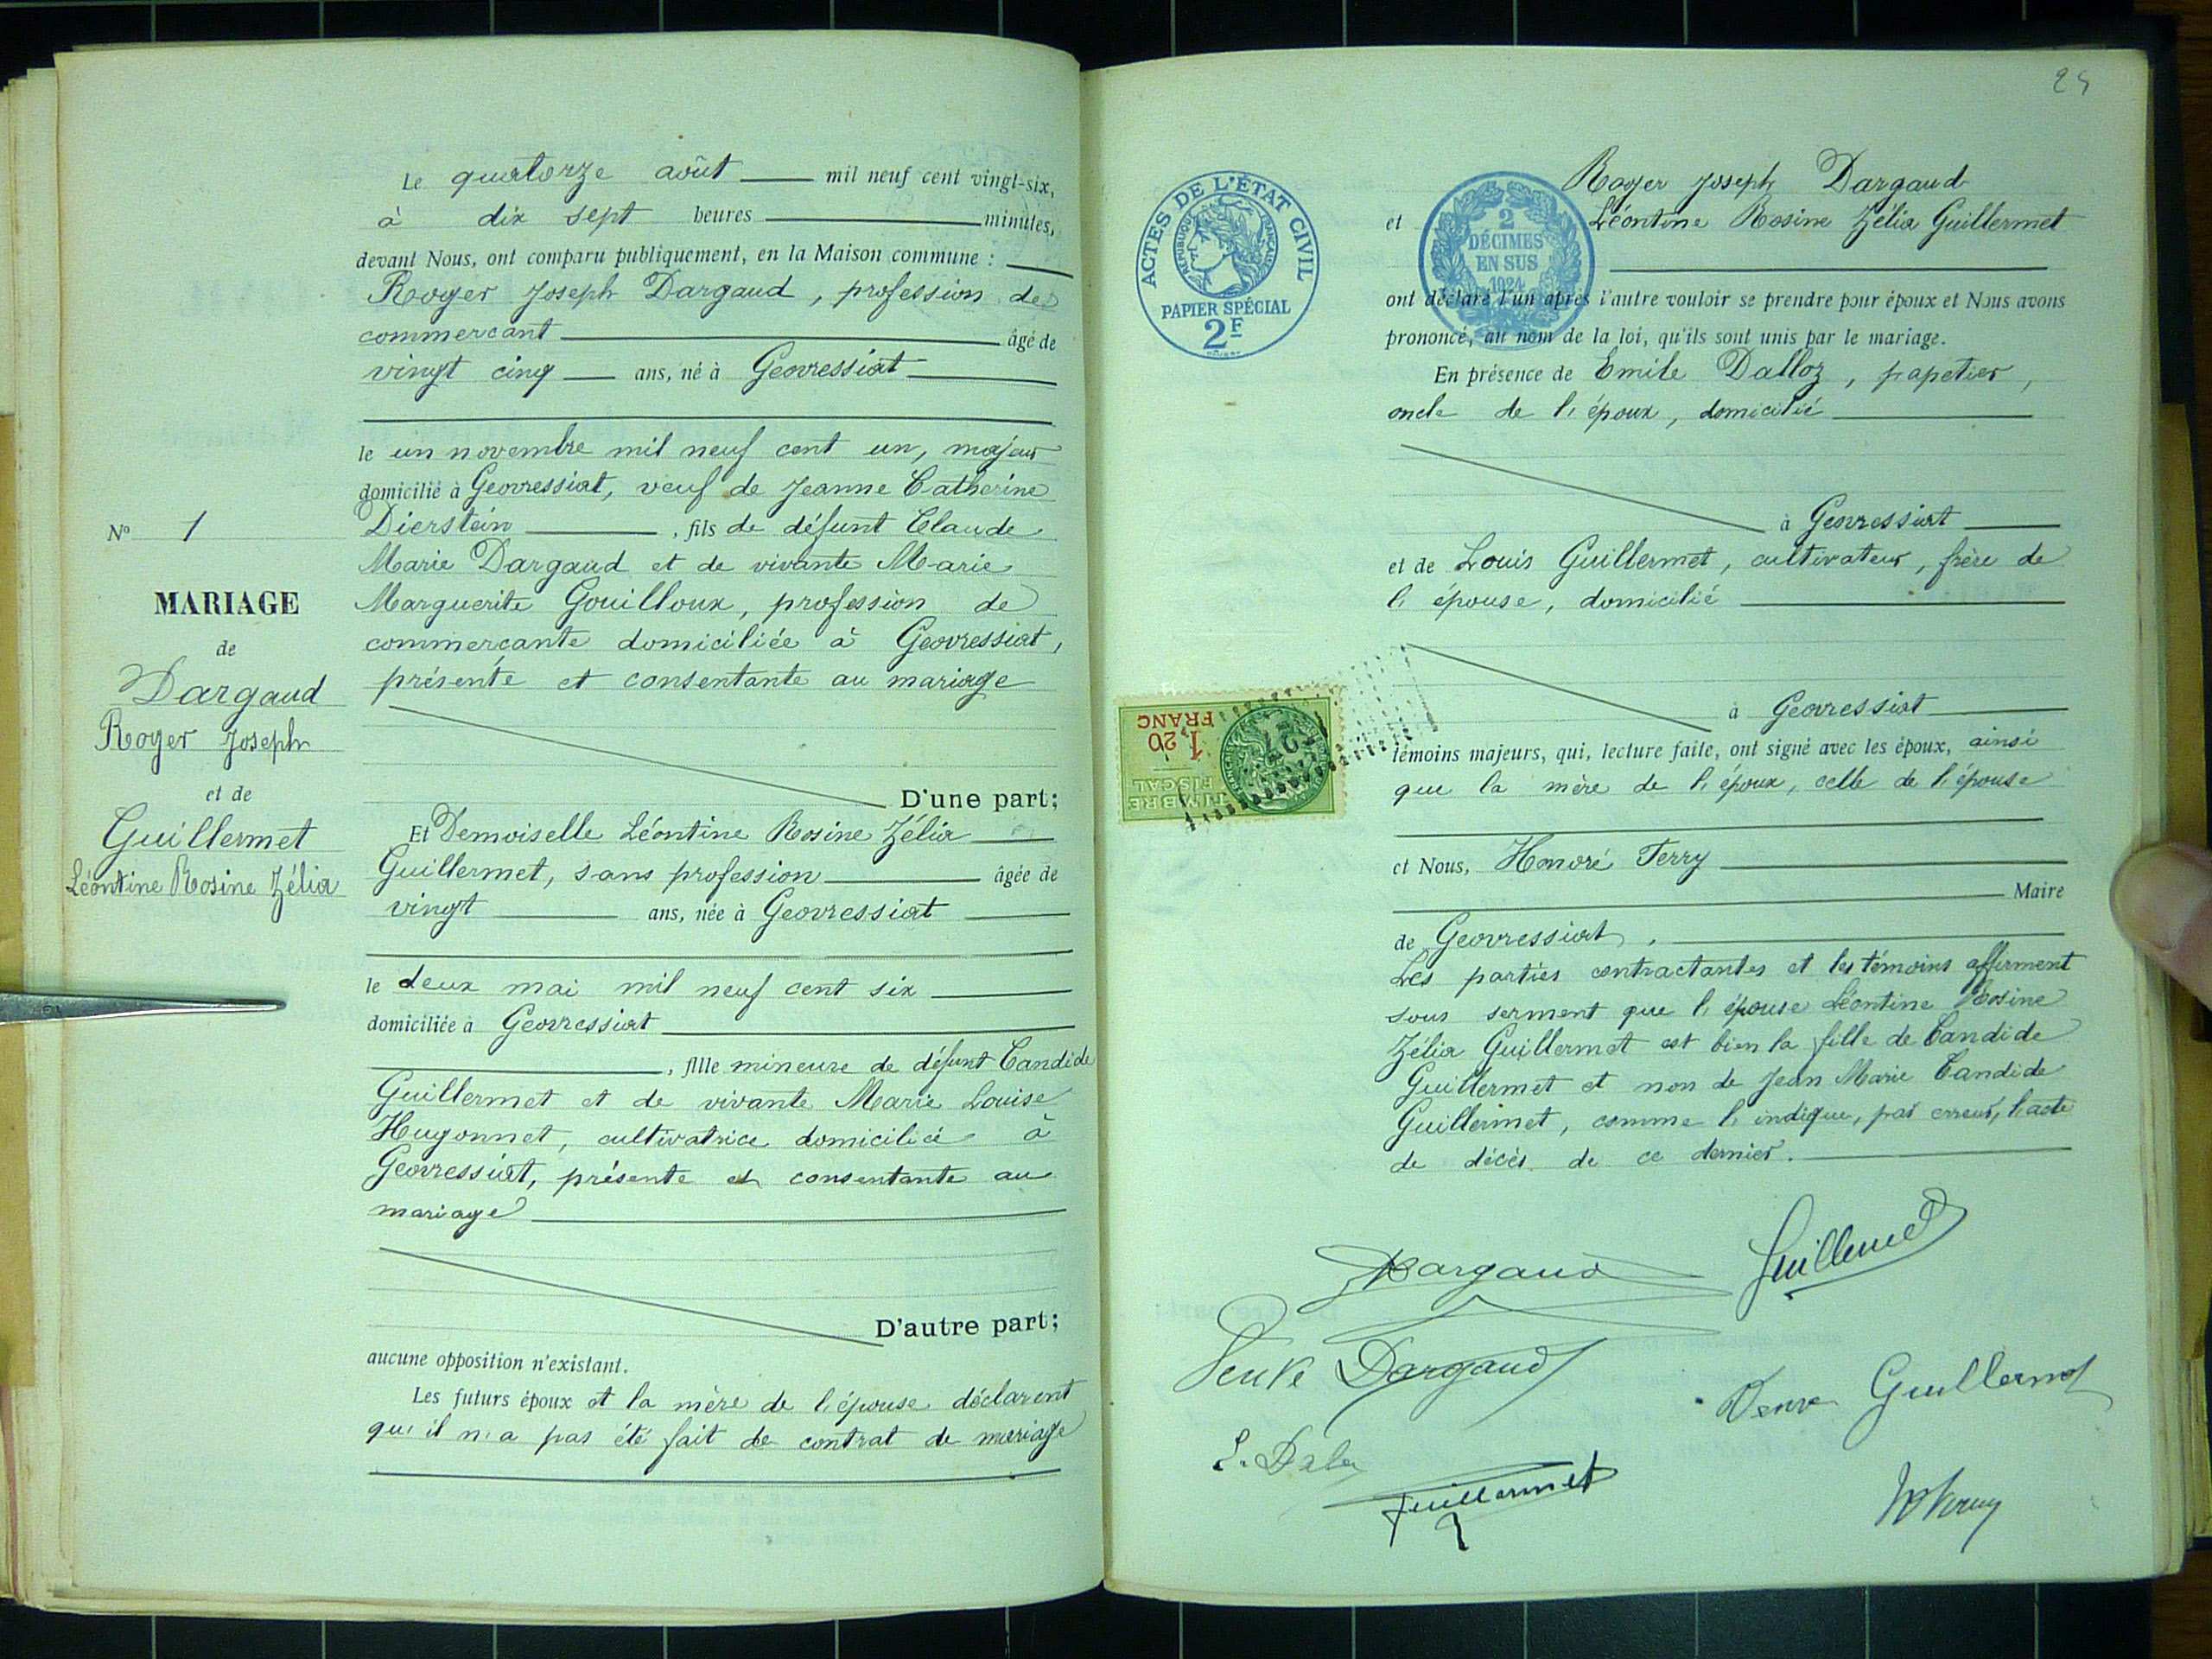 Le quatorze août mil neuf cent vingt-six,
à dix sept heures minutes,
devant Nous, ont comparu publiquement, en la Maison commune :
Roger Joseph Dargaud, profession de
commercant âgé de
vingt cinq ans, né à Geovressiat
le un novembre mil neuf cent un, majeur
domicilié à Geovressiat, veuf de Jeanne Catherine
Dierstein, fils de défunt Claude
Marie Dargaud et de vivante Marie
Marguerite Gouilloux, profession de
commerçante domiciliée à Geovressiat,
présente et consentante au mariage
D'une part;
Et Demoiselle Léontine Rosine Zélia
Guillermet, sans profession âgée de
vingt ans, née à Geovressiat
le deux mai mil neuf cent six
domiciliée à Geovressiat
, fille mineure de défunt Candide
Guillermet et de vivante Marie Louise
Hugonnet, cultivatrice domiciliée à
Geovressiat, présente et consentante au
mariage
D'autre part;
aucune opposition n'existant.
Les futurs époux et la mère de l'épouse déclarent
qu'il n'a pas été fait de contrat de mariage
N° 1
MARIAGE
de
Dargaud
Roger Joseph
et de
Guillermet
Léontine Rosine Zélia
ACTES DE L'ÉTAT CIVIL
RÉPUBLIQUE FRANÇAISE
PAPIER SPÉCIAL
2F
2
DÉCIMES
EN SUS
1924
Roger Joseph Dargaud
et Léontine Rosine Zélia Guillermet
ont déclaré l'un après l'autre vouloir se prendre pour époux et Nous avons
prononcé, au nom de la loi, qu'ils sont unis par le mariage.
En présence de Emile Dalloz, papetier,
oncle de l'époux, domicilié
à Geovressiat
et de Louis Guillermet, cultivateur, frère de
l'épouse, domicilié
à Geovressiat
témoins majeurs, qui, lecture faite, ont signé avec les époux, ainsi
que la mère de l'époux, celle de l'épouse
et Nous, Honoré Ferry
Maire
de Geovressiat.
Les parties contractantes et les témoins affirment
sous serment que l'épouse Léontine Rosine
Zélia Guillermet est bien la fille de Candide
Guillermet et non de Jean Marie Candide
Guillermet, comme l'indique, par erreur, l'acte
de décès de ce dernier.
TIMBRE
FISCAL
1,20
FRANC
Dargaud
Guillermet
Veuve Dargaud
Veuve Guillermet
Guillermet